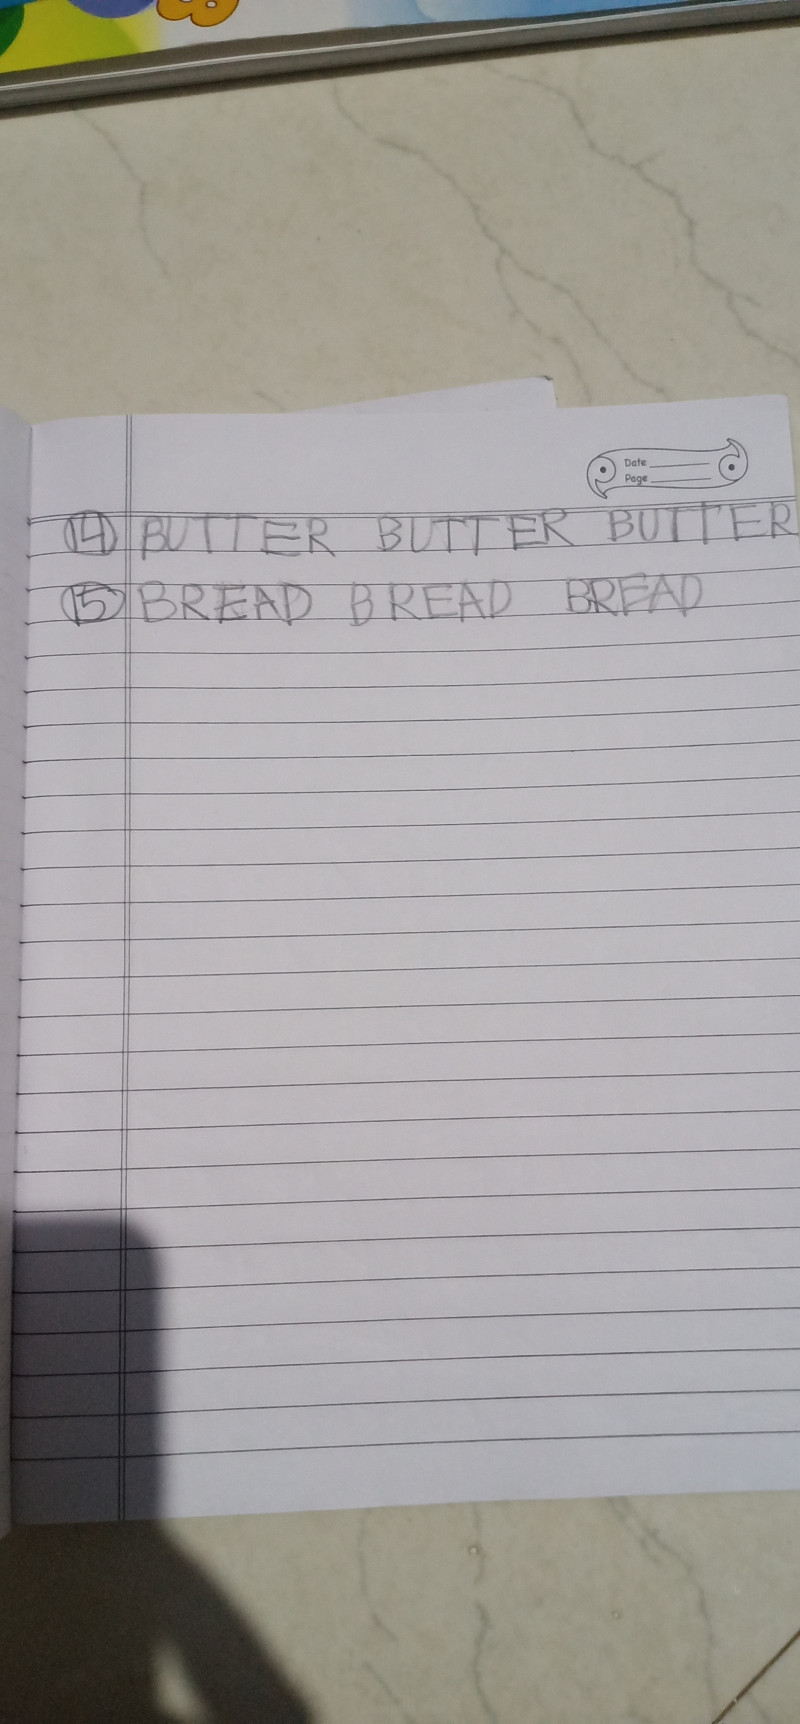 Date
Page
14 BUTTER BUTTER BUTTER
15 BREAD BREAD BREAD